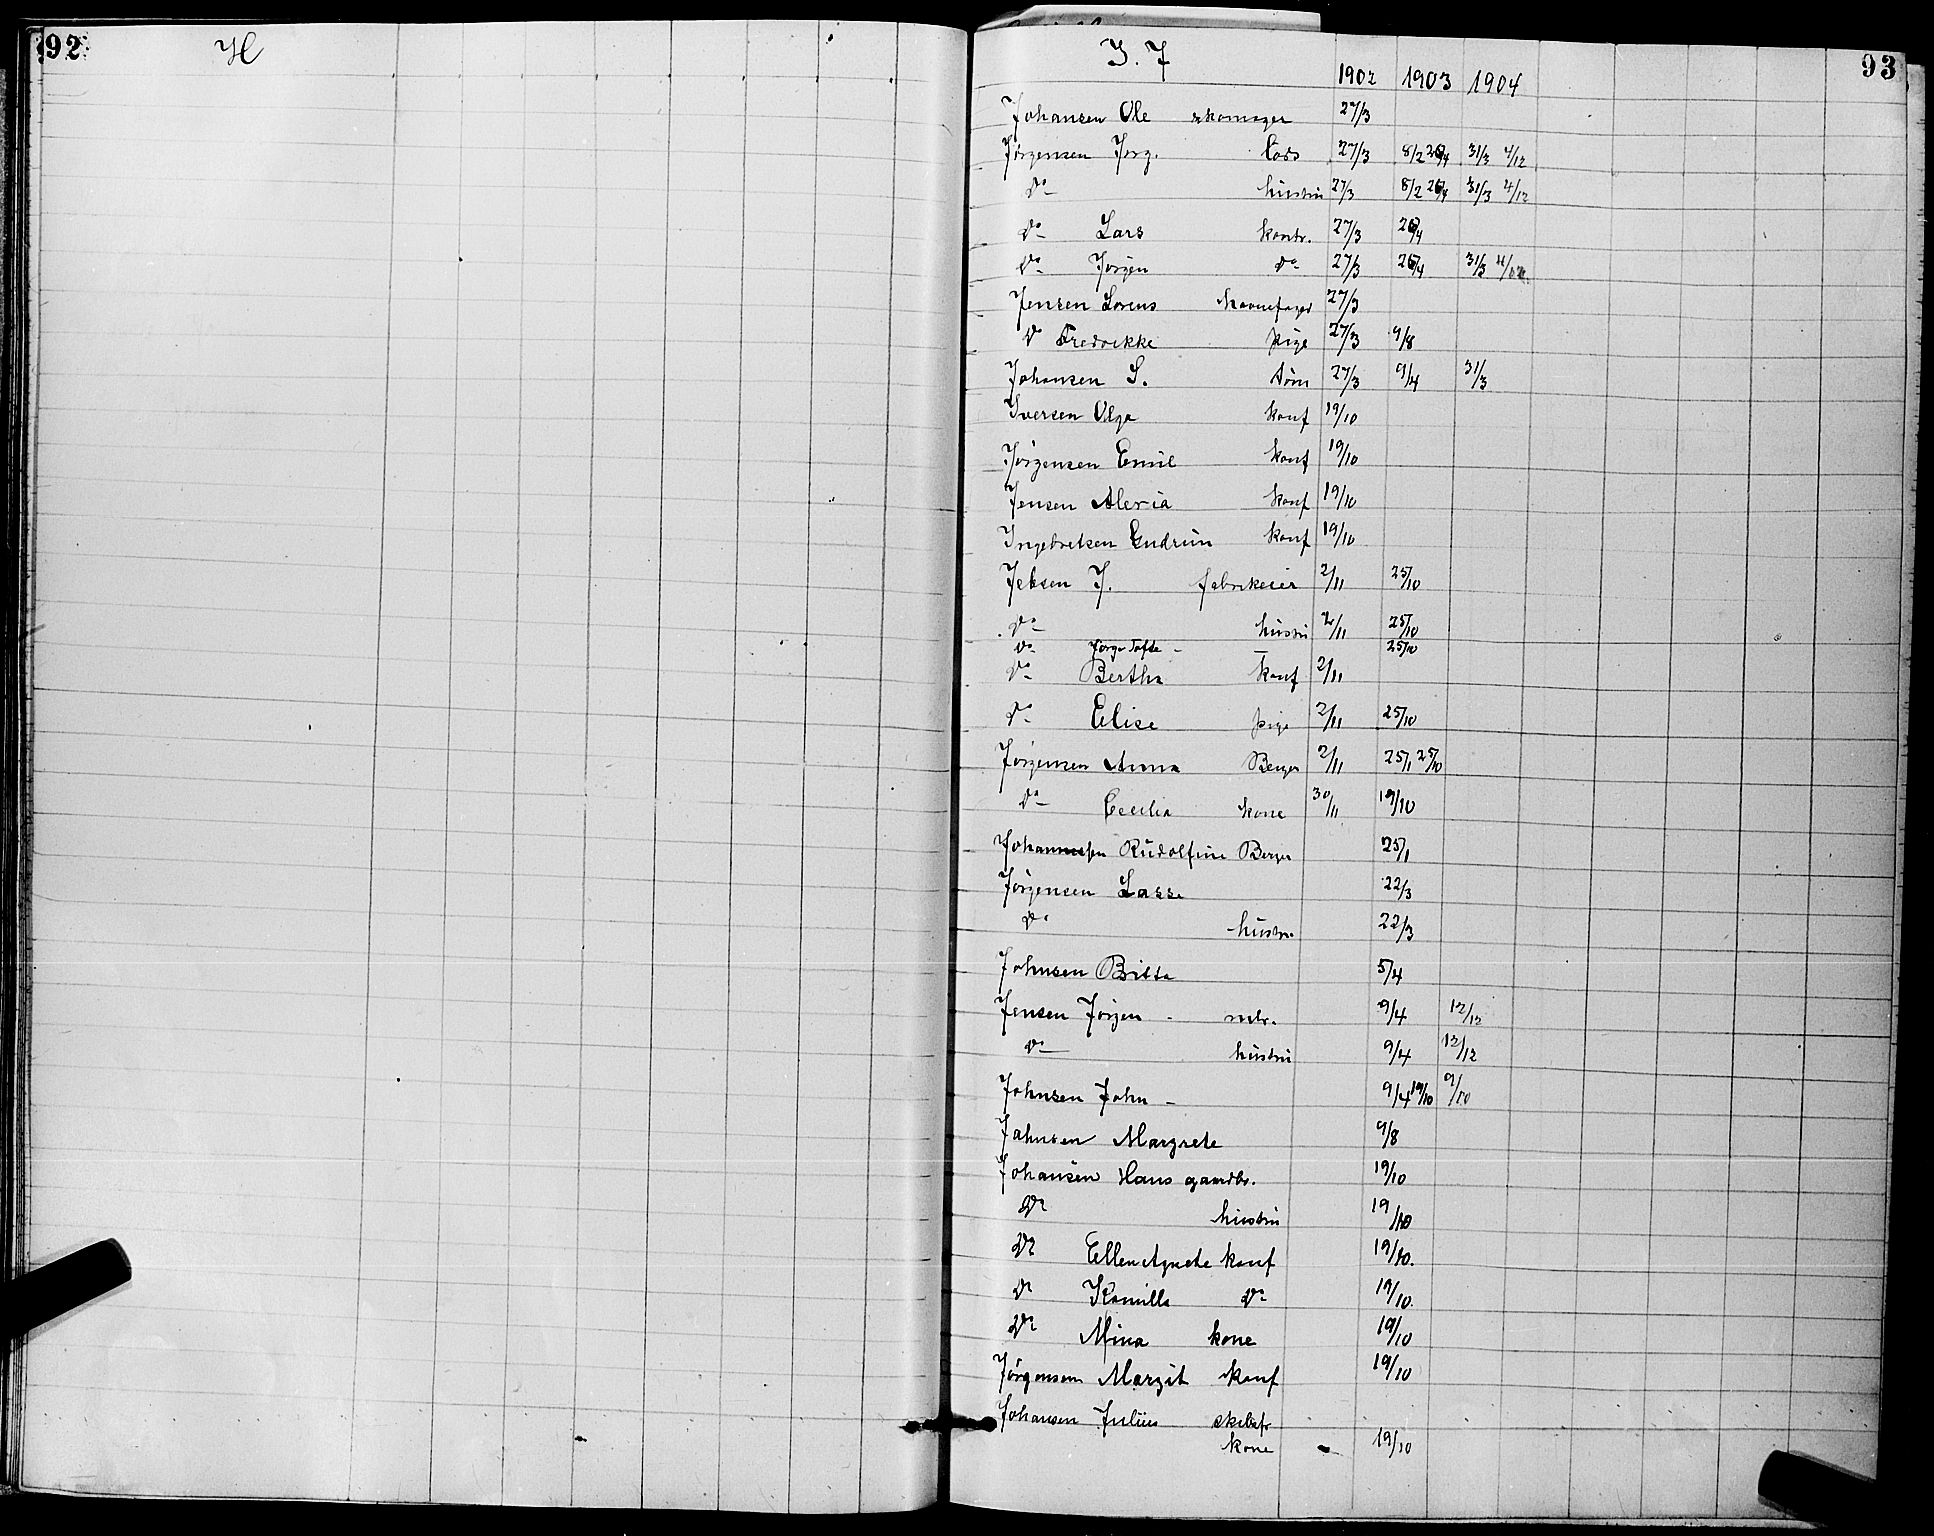 92
H
93
I. J
1902 1903 1904
Johansen Ole skomager 27/3
Jørgensen Jørg. Lods 27/3 8/2 26/4 31/3 4/12
Do hustru 27/3 8/2 26/4 31/3 4/12
Do Lars konf. 27/3 26/4
Do Jørgen Do 27/3 26/4 31/3 4/12
Jensen Lorens 27/3
Do Fredrikke pige 27/3 9/8
Johansen S. 27/3 9/4 31/3
Iversen Olga konf 19/10
Jørgensen Emil konf 19/10
Jensen Aleria konf 19/10
Ingebretsen Gudrun konf 19/10
Jebsen J. fabrikeier 2/11 25/10
Do hustru 2/11 25/10
Do 25/10
Do Bertha konf 2/11
Do Elise pige 2/11 25/10
Jørgensen Anna Berger 2/11 25/1 25/10
Do Cecilia kone 30/11 19/10
Rudolfine Berger 25/1
Jørgensen Lasse 22/3
Do hustru 22/3
Johnsen Britta 5/4
Jensen Jørgen - 9/4 12/12
Do hustru 9/4 12/12
Johnsen John - 9/4 19/10 9/10
Johnsen Margrete 9/8
Johansen Hans gaardbr. 19/10
Do hustru 19/10
Do Ellen Agnete konf 19/10.
Do Kamilla Do 19/10.
Do Mina kone 19/10
Jørgensen Margit konf 19/10
Johansen Julius skibsfr
kone - 19/10